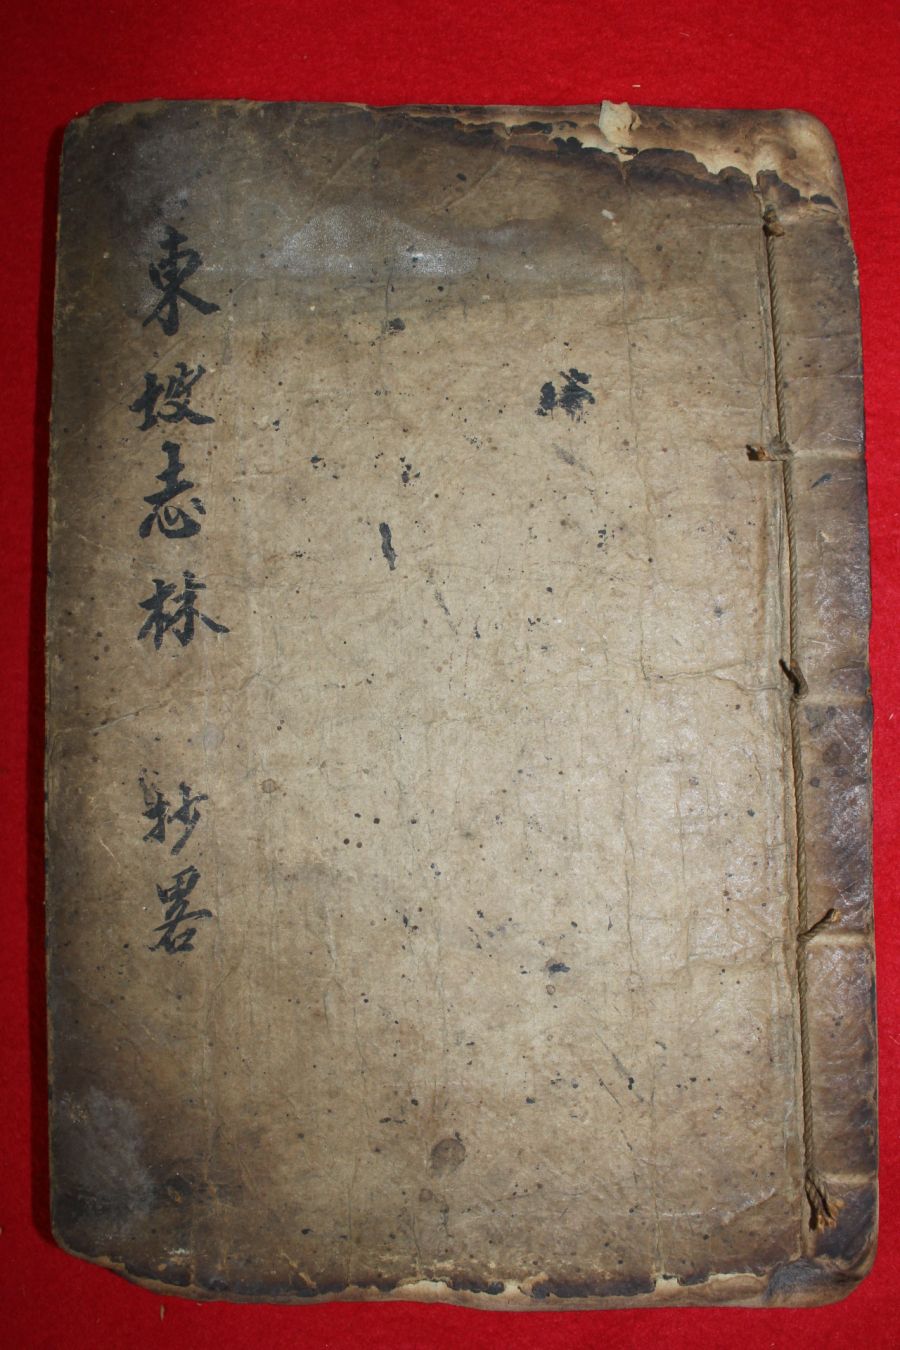 東坡志林 抄畧